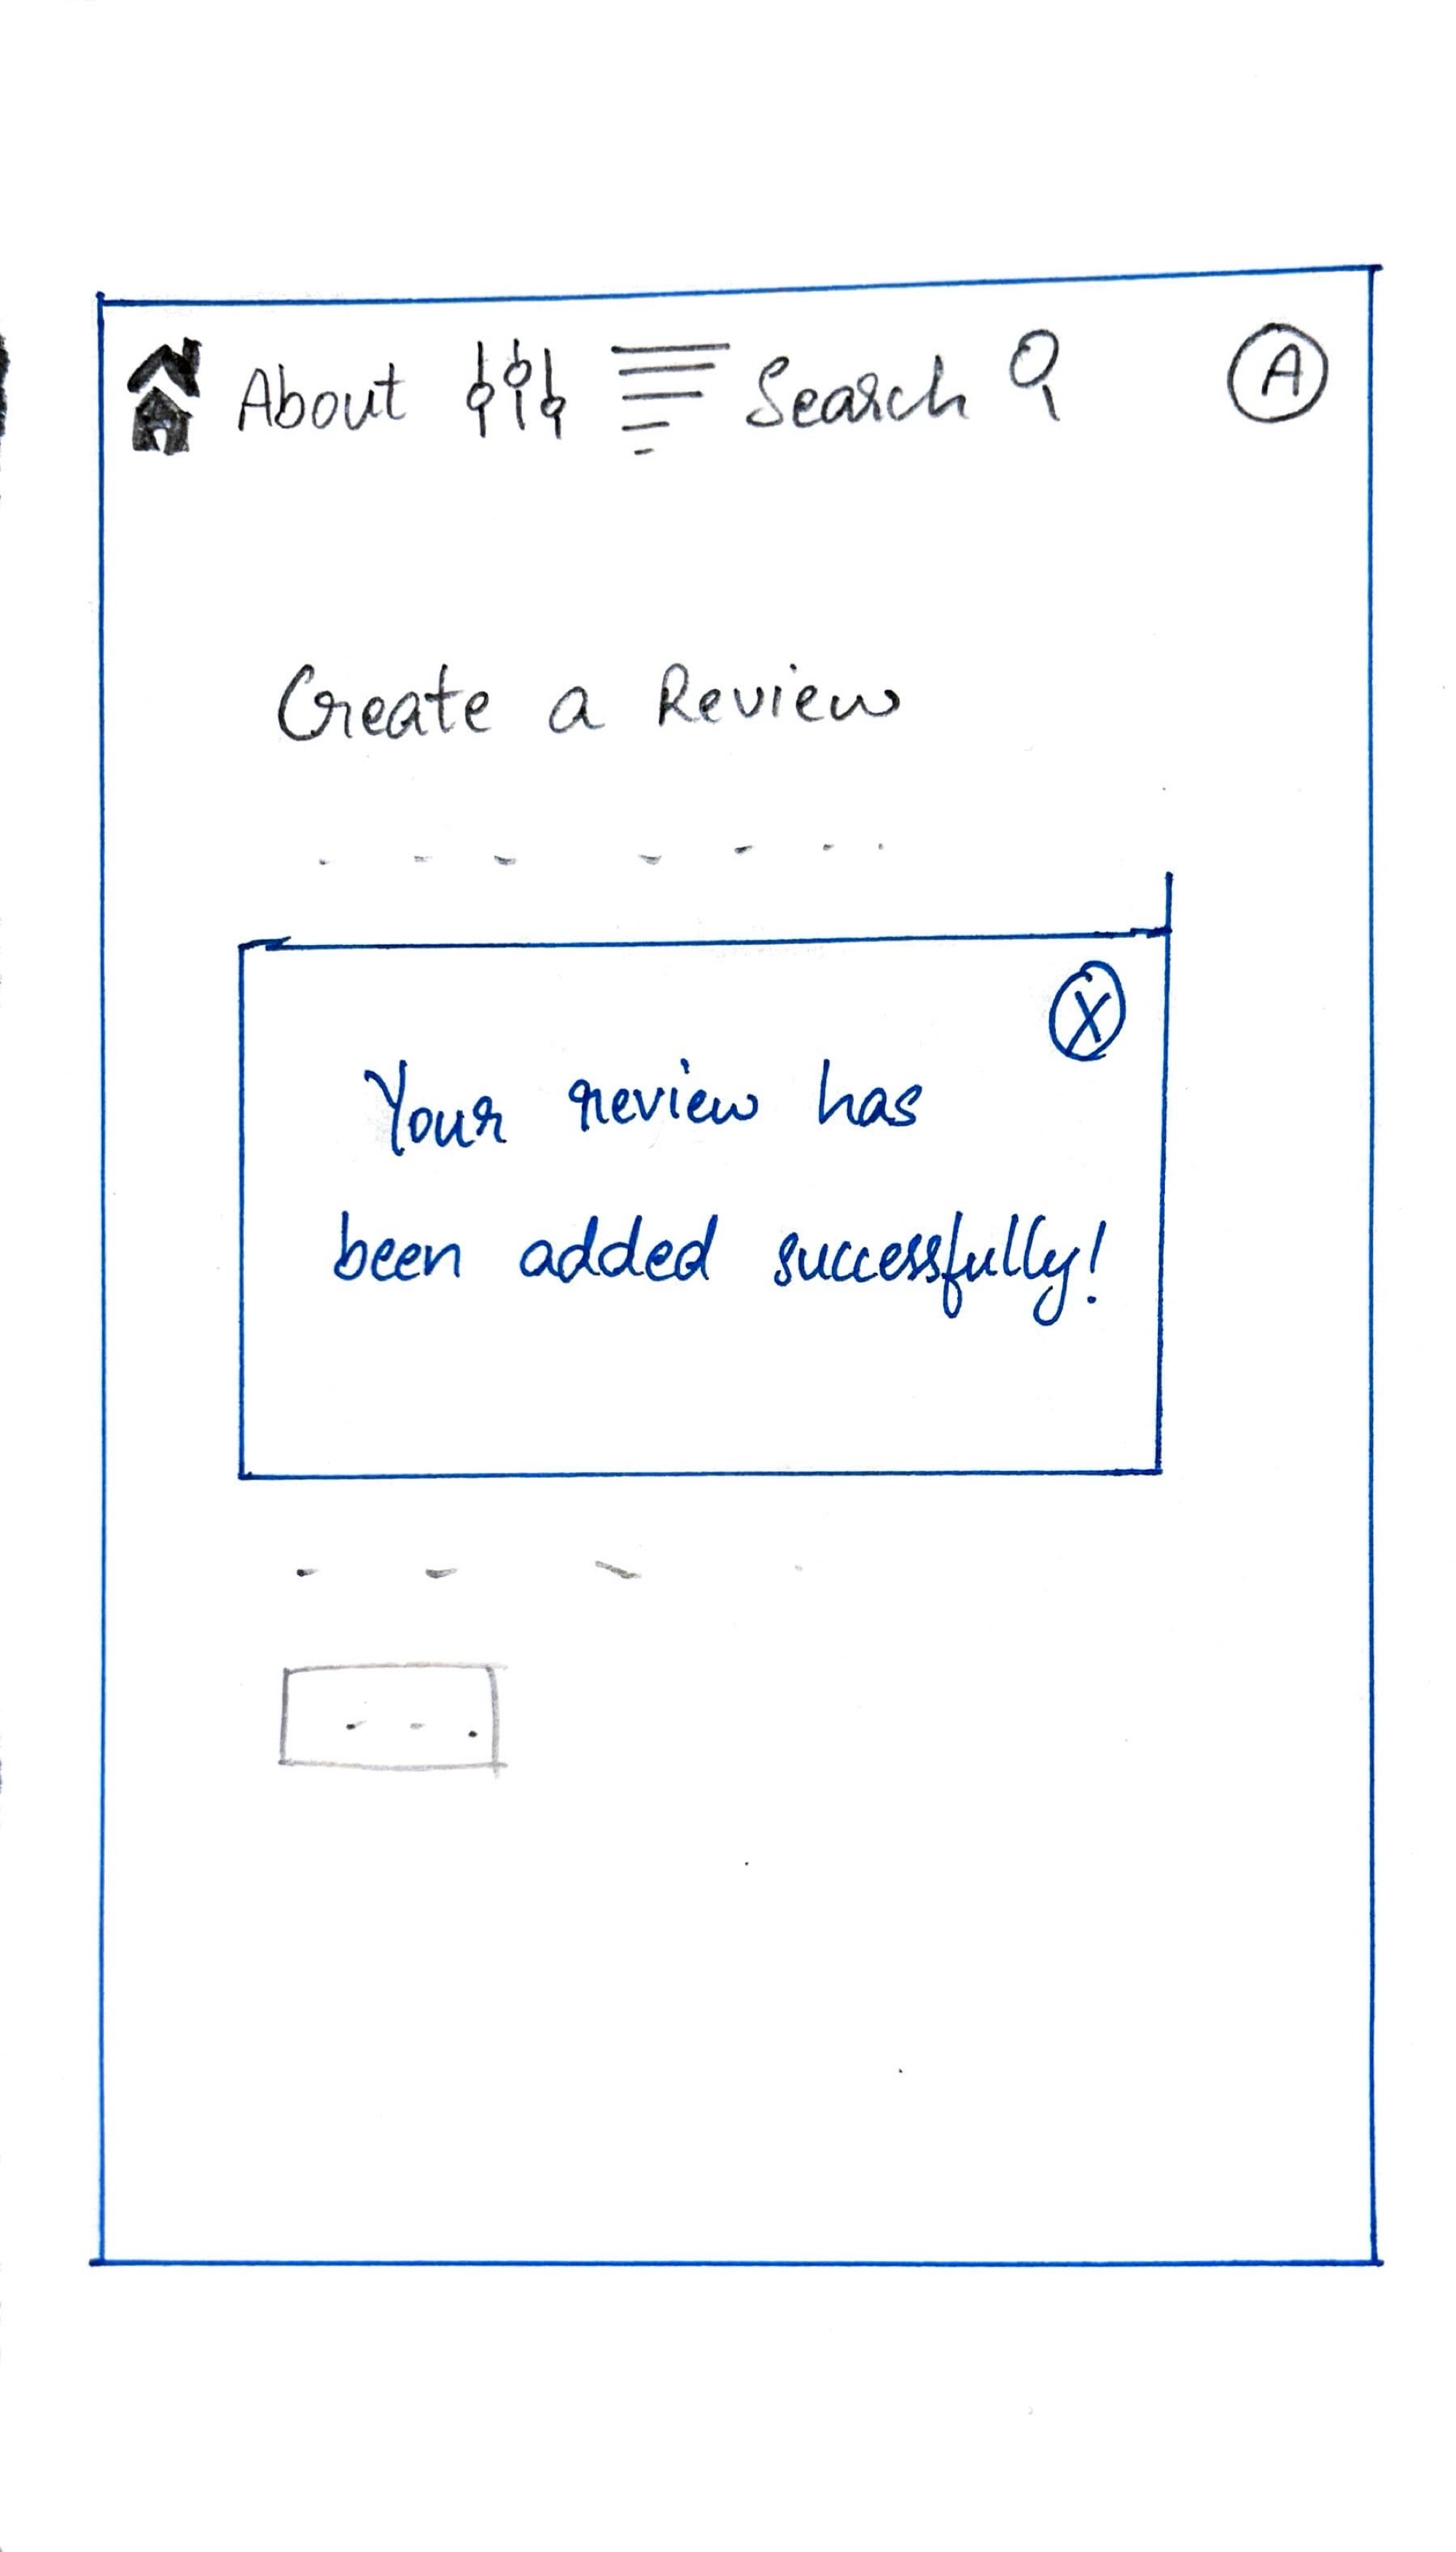 About Search A
Create a Review
X
Your review has
been added successfully!